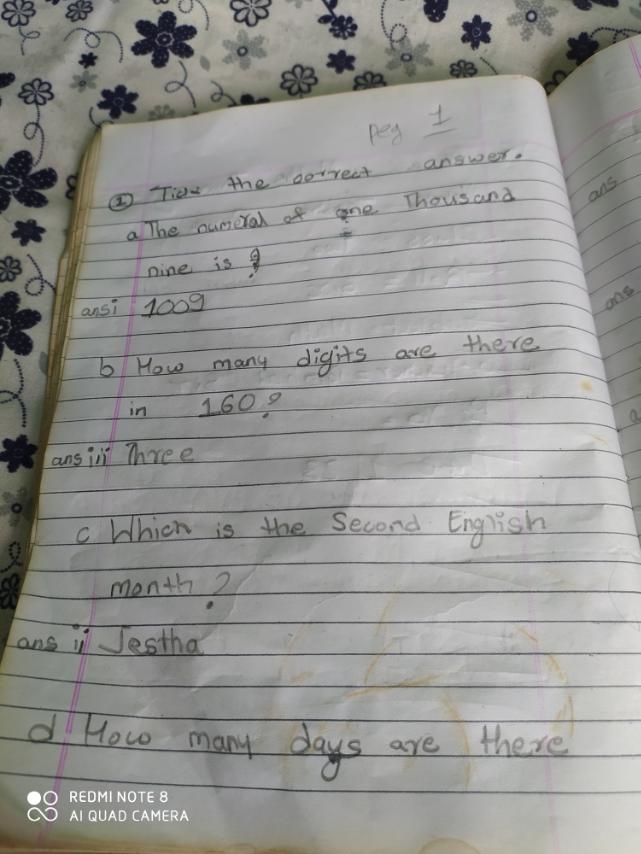 peg 1
① Tick the correct answer.
a The numeral of one Thousand
nine is ?
ans i 1009
b How many digits are there
in 160?
ans iii Three
c Which is the Second English
month?
ans ii Jestha
d How many days are there
ans
ans
REDMI NOTE 8
AI QUAD CAMERA